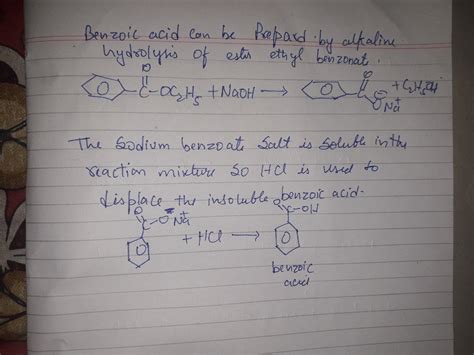 Benzoic acid can be Prepard by alkaline
hydrolysis of ester ethyl benzoate.
O
C-OC2H5 + NaOH → C O + C2H5OH
O Na+
The Sodium benzoate Salt is Soluble in the
reaction mixture So HCl is used to
displace the insoluble benzoic acid.
O C-O Na+ + HCl → O C-OH
benzoic
acid